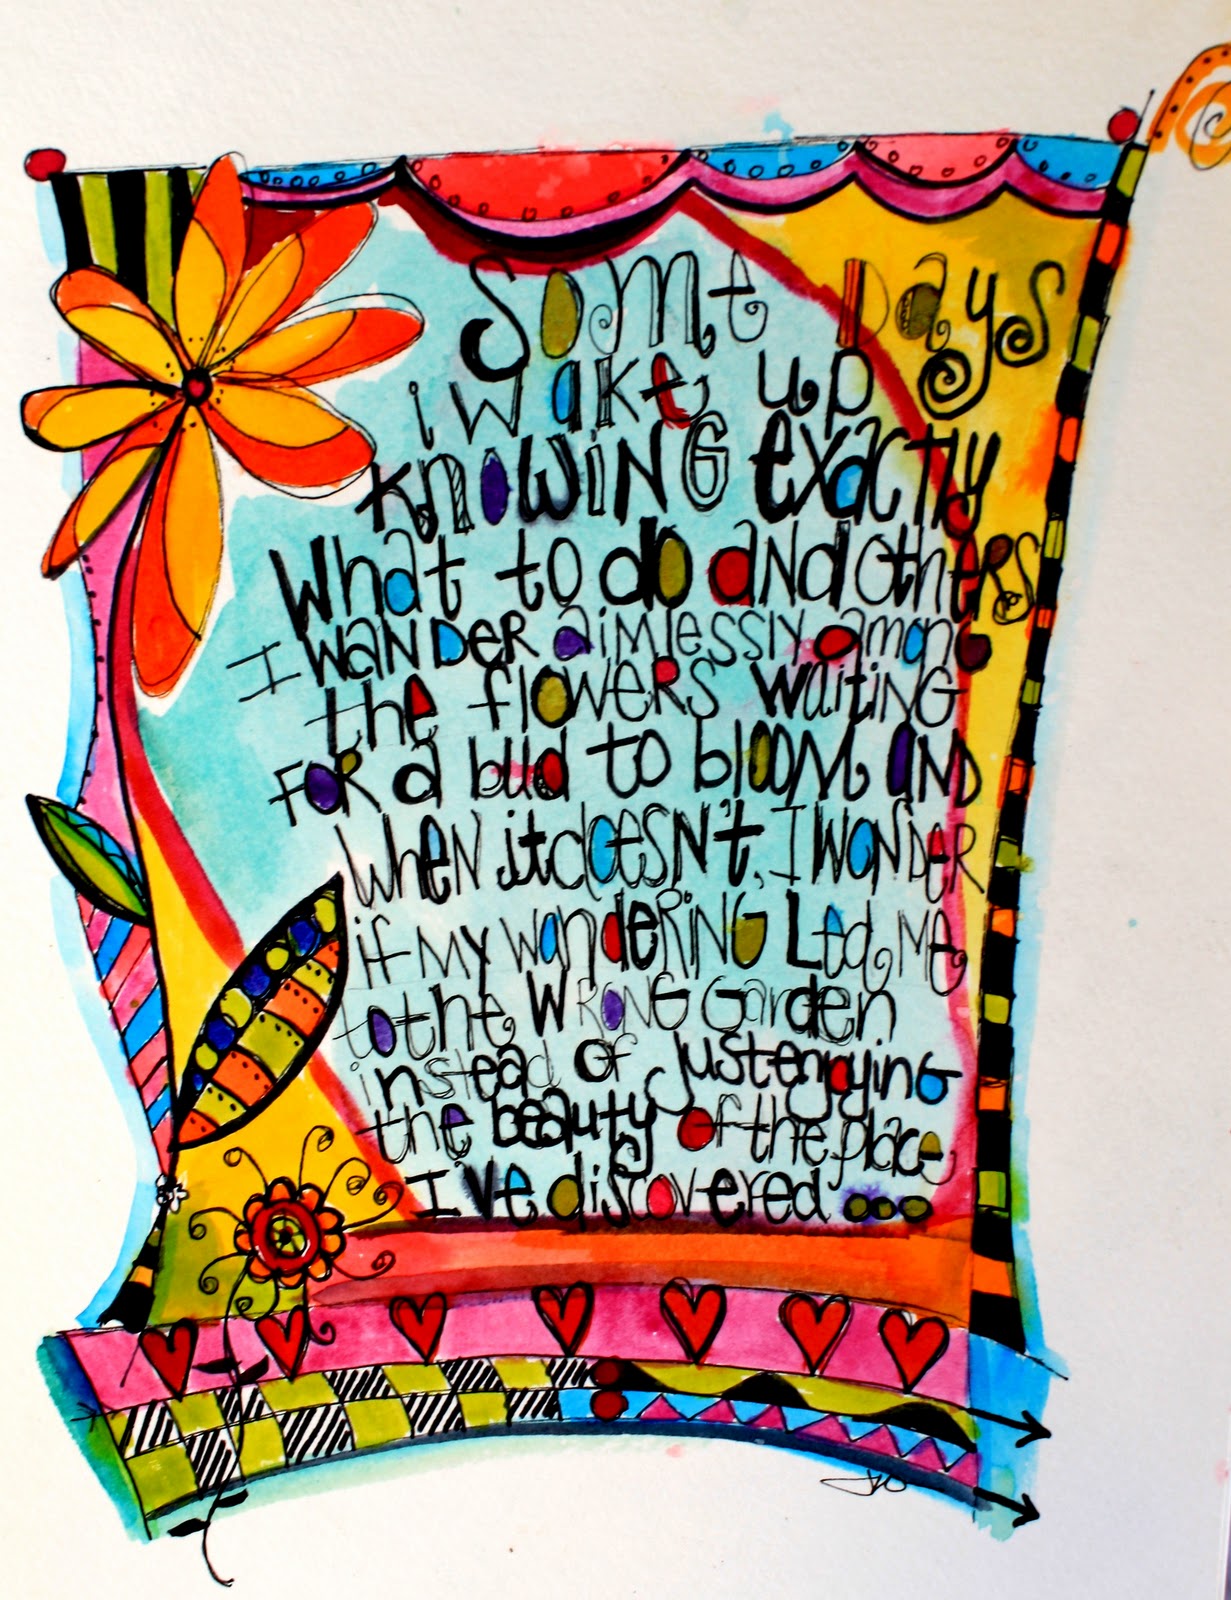 Some Days
i wake up
KNOWiNG exactly
What to do and others
I WANDER aimlessly among
the flowers waiting
FOR a bud to bloom AND
WheN it doesn't, I WONDER
if MY wandeRING Led Me
to the WRONG Garden
instead of just enjoying
the beauty of the place
I've discovered ...